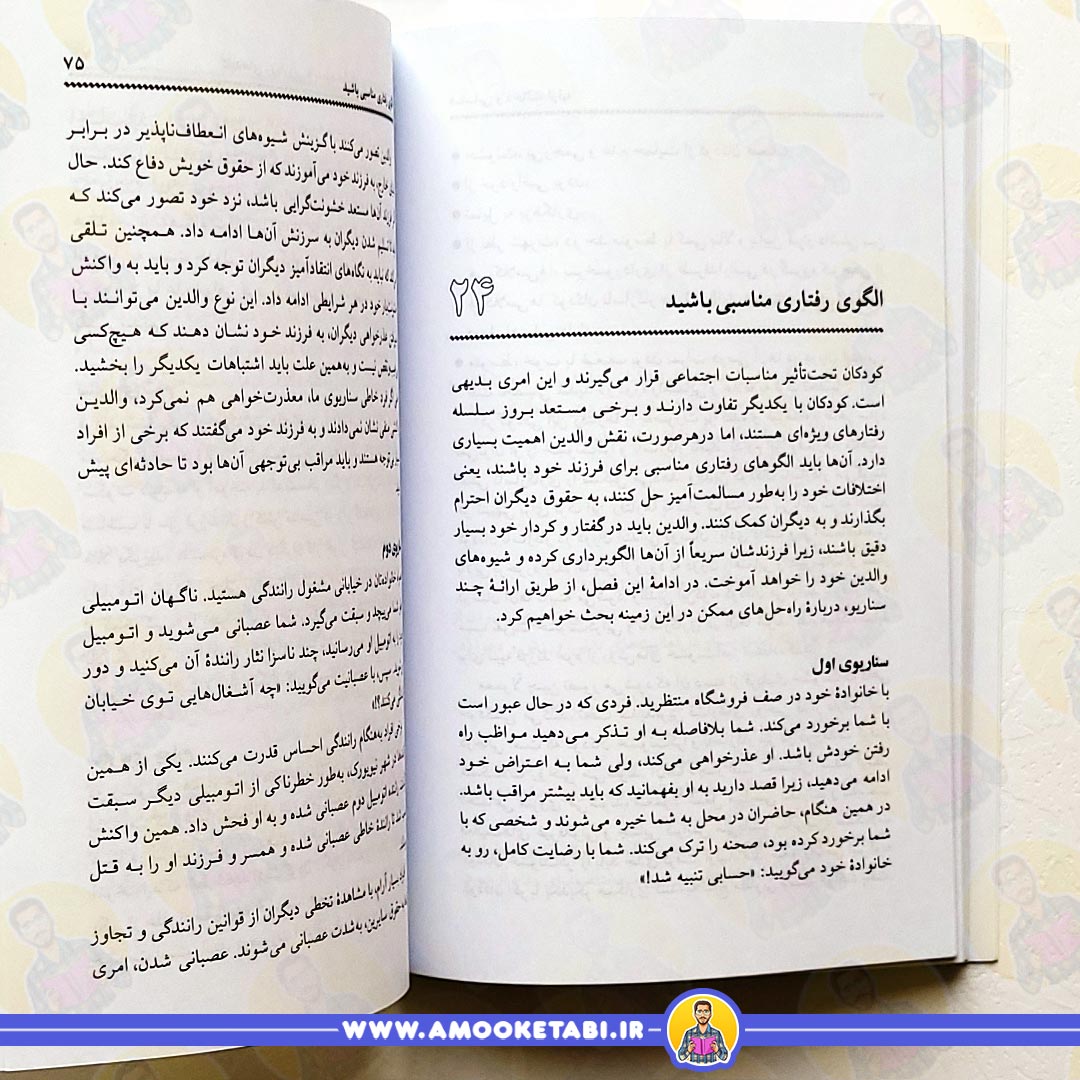 ۲۴
الگوی رفتاری مناسبی باشید
کودکان تحت‌تأثیر مناسبات اجتماعی قرار می‌گیرند و این امری بدیهی
است. کودکان با یکدیگر تفاوت دارند و برخی مستعد بروز سلسله
رفتارهای ویژه‌ای هستند، اما درهرصورت، نقش والدین اهمیت بسیاری
دارد. آن‌ها باید الگوهای رفتاری مناسبی برای فرزند خود باشند، یعنی
اختلافات خود را به‌طور مسالمت‌آمیز حل کنند، به حقوق دیگران احترام
بگذارند و به دیگران کمک کنند. والدین باید در گفتار و کردار خود بسیار
دقیق باشند، زیرا فرزندشان سریعاً از آن‌ها الگوبرداری کرده و شیوه‌های
والدین خود را خواهد آموخت. در ادامهٔ این فصل، از طریق ارائهٔ چند
سناریو، دربارهٔ راه‌حل‌های ممکن در این زمینه بحث خواهیم کرد.
سناریوی اول
با خانوادهٔ خود در صف فروشگاه منتظرید. فردی که در حال عبور است
با شما برخورد می‌کند. شما بلافاصله به او تذکر می‌دهید مواظب راه
رفتن خودش باشد. او عذرخواهی می‌کند، ولی شما به اعتراض خود
ادامه می‌دهید، زیرا قصد دارید به او بفهمانید که باید بیشتر مراقب باشد.
در همین هنگام، حاضران در محل به شما خیره می‌شوند و شخصی که با
شما برخورد کرده بود، صحنه را ترک می‌کند. شما با رضایت کامل، رو به
خانوادهٔ خود می‌گویید: «حسابی تنبیه شد!»
۷۵
رفتاری مناسبی باشید
تصور می‌کنند با گزینش شیوه‌های انعطاف‌ناپذیر در برابر
به فرزند خود می‌آموزند که از حقوق خویش دفاع کند. حال
آن‌ها مستعد خشونت‌گرایی باشد، نزد خود تصور می‌کند که
تسلیم شدن دیگران به سرزنش آن‌ها ادامه داد. همچنین تلقی
نباید به نگاه‌های انتقادآمیز دیگران توجه کرد و باید به واکنش
خود در هر شرایطی ادامه داد. این نوع والدین می‌توانند با
عذرخواهی دیگران، به فرزند خود نشان دهند که هیچ‌کسی
نیست و به‌همین علت باید اشتباهات یکدیگر را بخشید.
اگر فرد خاطی سناریوی ما، معذرت‌خواهی هم نمی‌کرد، والدین
نشان نمی‌دادند و به فرزند خود می‌گفتند که برخی از افراد
توجه هستند و باید مراقب بی‌توجهی آن‌ها بود تا حادثه‌ای پیش
دوم
خانواده‌تان در خیابانی مشغول رانندگی هستید. ناگهان اتومبیلی
می‌پیچد و سبقت می‌گیرد. شما عصبانی می‌شوید و اتومبیل
به اتومبیل او می‌رسانید، چند ناسزا نثار رانندهٔ آن می‌کنید و دور
سپس، با عصبانیت می‌گویید: «چه آشغال‌هایی توی خیابان
می‌کنند؟!»
افراد به‌هنگام رانندگی احساس قدرت می‌کنند. یکی از همین
در شهر نیویورک، به‌طور خطرناکی از اتومبیلی دیگر سبقت
رانندهٔ اتومبیل دوم عصبانی شده و به او فحش داد. همین واکنش
تا رانندهٔ خاطی عصبانی شده و همسر و فرزند او را به قتل
بسیار آرام، با مشاهدهٔ تخطی دیگران از قوانین رانندگی و تجاوز
حقوق سایرین، به‌شدت عصبانی می‌شوند. عصبانی شدن، امری
WWW.AMOOKETABI.IR